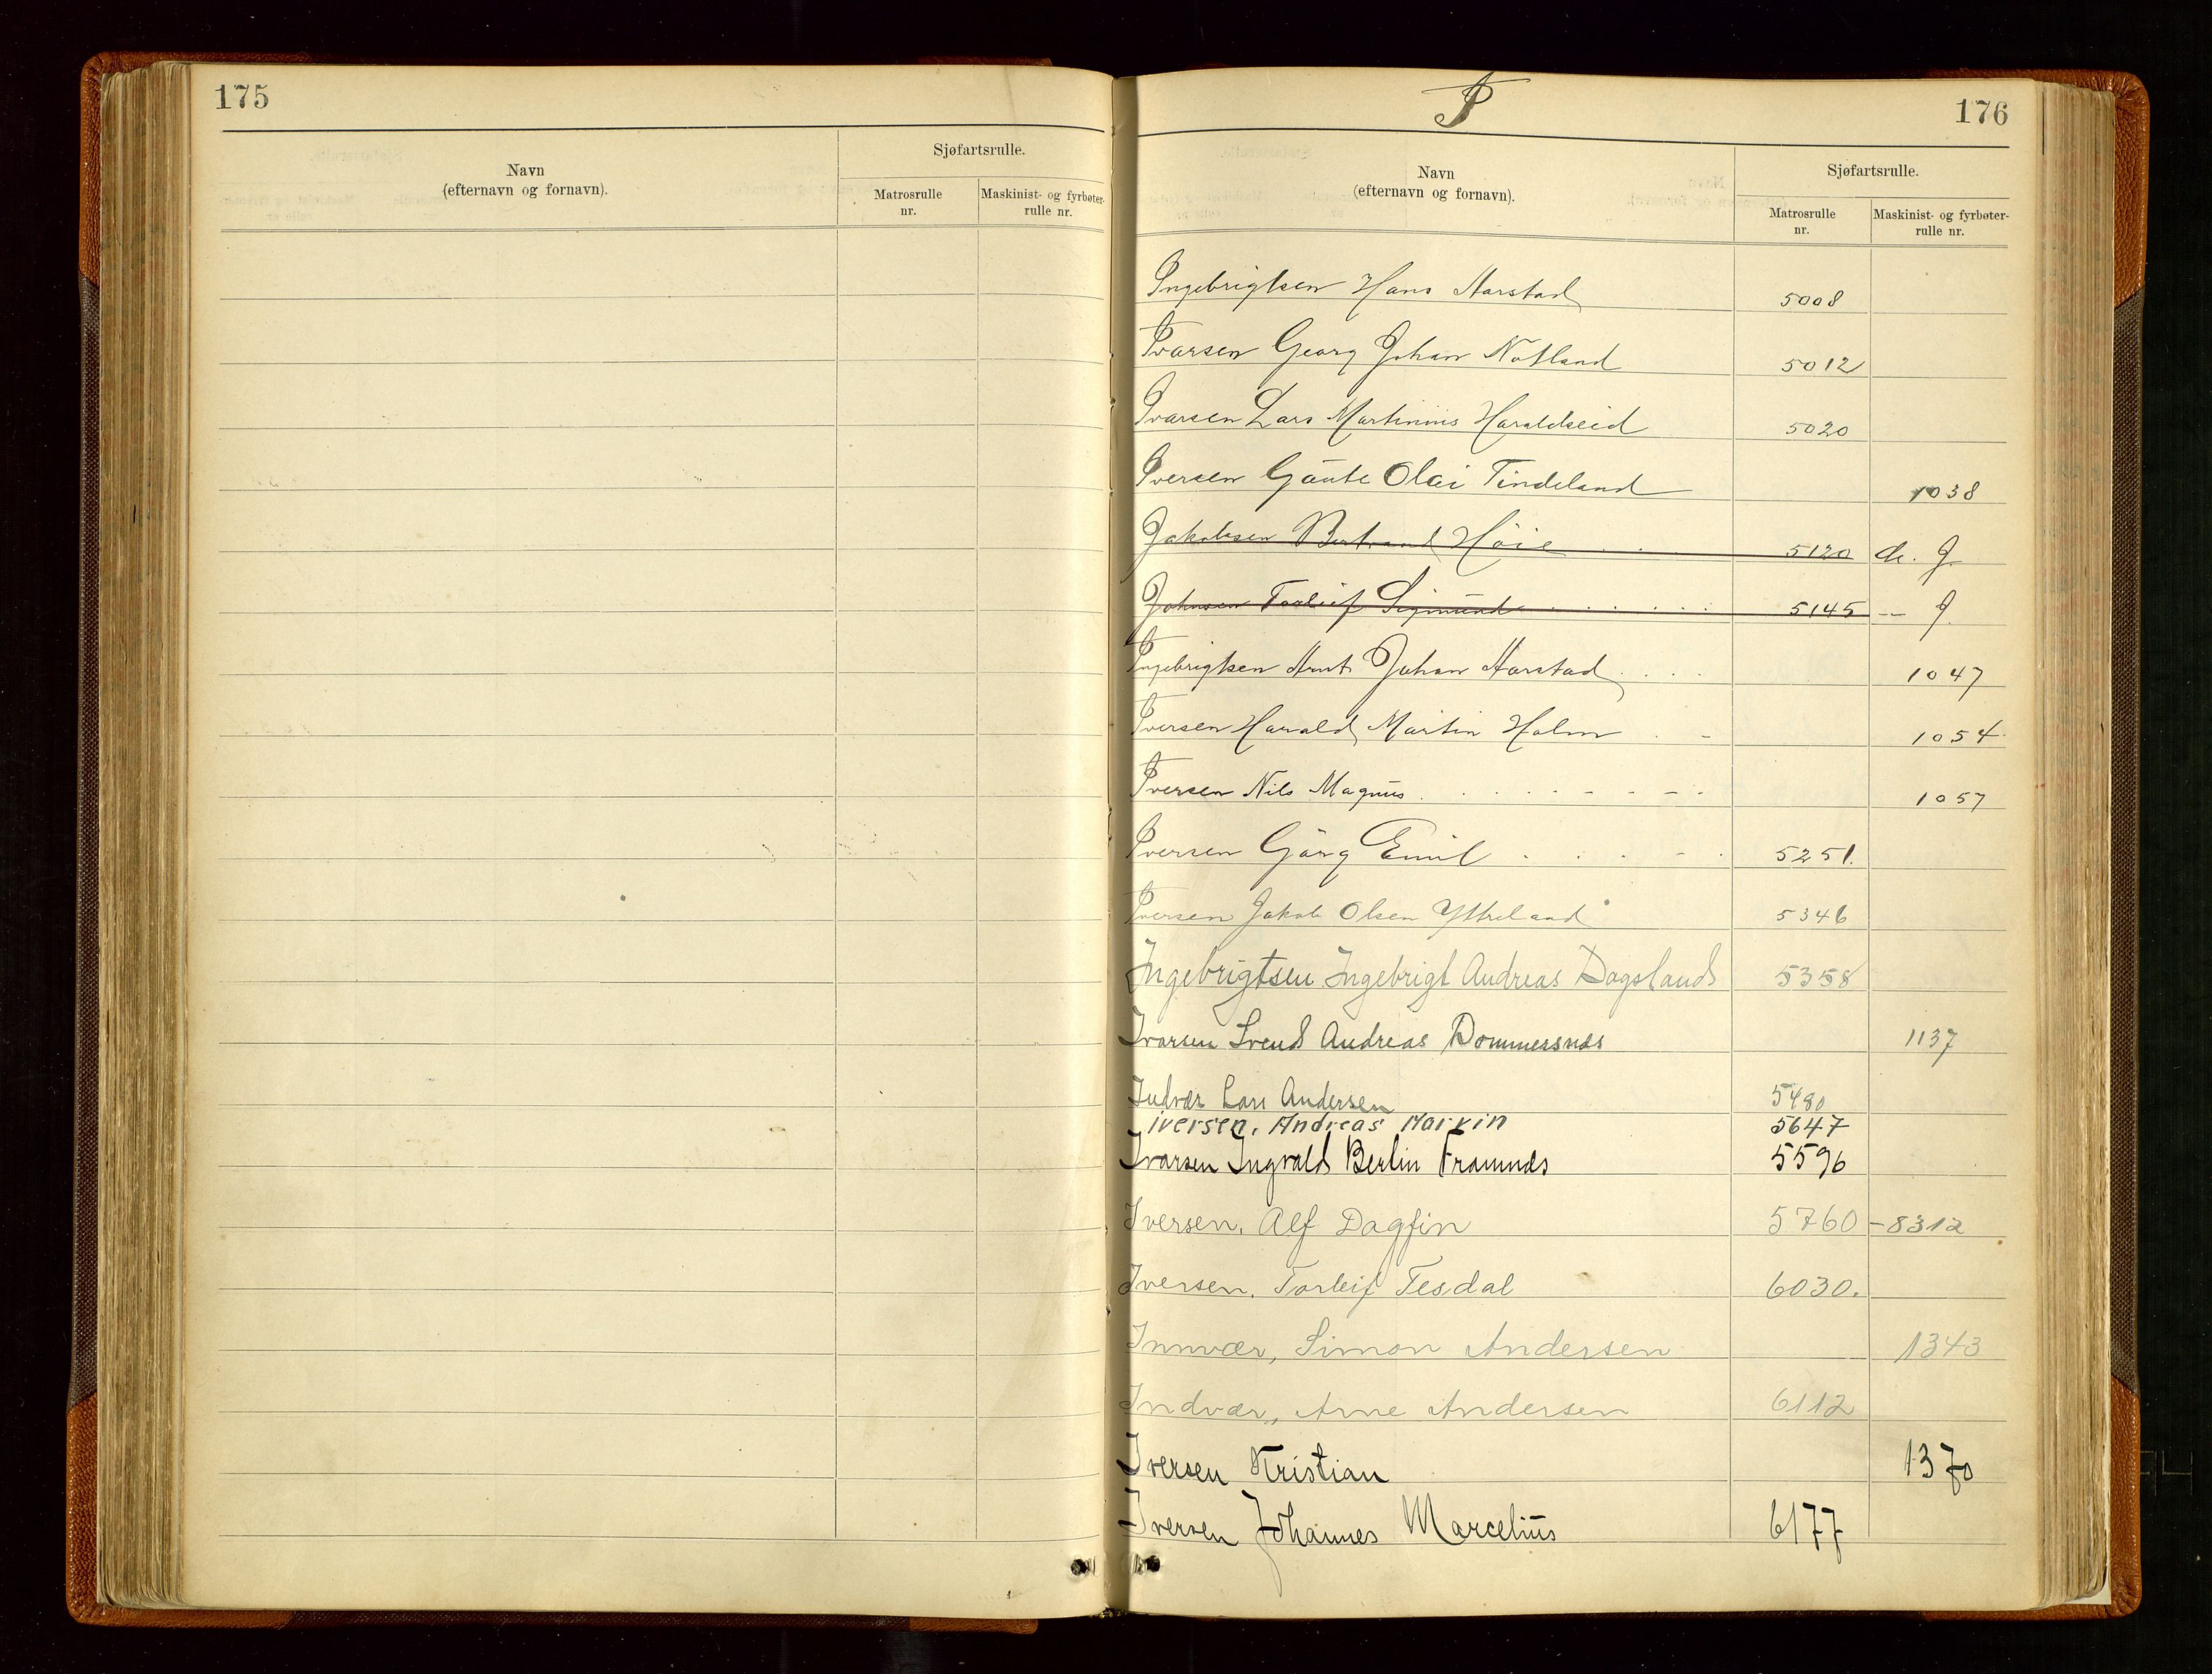 175
Navn
(efternavn og fornavn).
Sjøfartsrulle.
Matrosrulle
nr.
Maskinist- og fyrbøter-
rulle nr.
I
176
Navn
(efternavn og fornavn).
Sjøfartsrulle.
Matrosrulle
nr.
Maskinist- og fyrbøter-
rulle nr.
Ingebrigtsen Hans Harstad 5008
Ivarsen Georg Johan Notland 5012
Ivarsen Lars Martinius Haraldseid 5020
Iversen Gaute Olai Tindeland 1038
Jakobsen Bertrand Høie 5120 J.
Johnsen Torleif Sigmund 5145 — J.
Ingebrigtsen Arnt Johan Harstad 1047
Iversen Harald Martin Holm 1054
Iversen Nils Magnus 1057
Iversen Emil 5251.
Iversen Jakob Olsen Yttreland 5346
Ingebrigtsen Ingebrigt Andreas Dagsland 5358
Ivarsen Svend Andreas Dommersnes 1137
Indvær Lars Andersen 5480
Iversen, Andreas Marvin 5647
Ivarsen Ingvald Berlin Framnes 5596
Iversen, Alf Dagfin 5760 - 8312
Iversen, Torleif Tesdal 6030.
Innvær, Simon Andersen 1343
Indvær, Arne Andersen 6112
Iversen Kristian 1370
Iversen Johannes Marcelius 6177